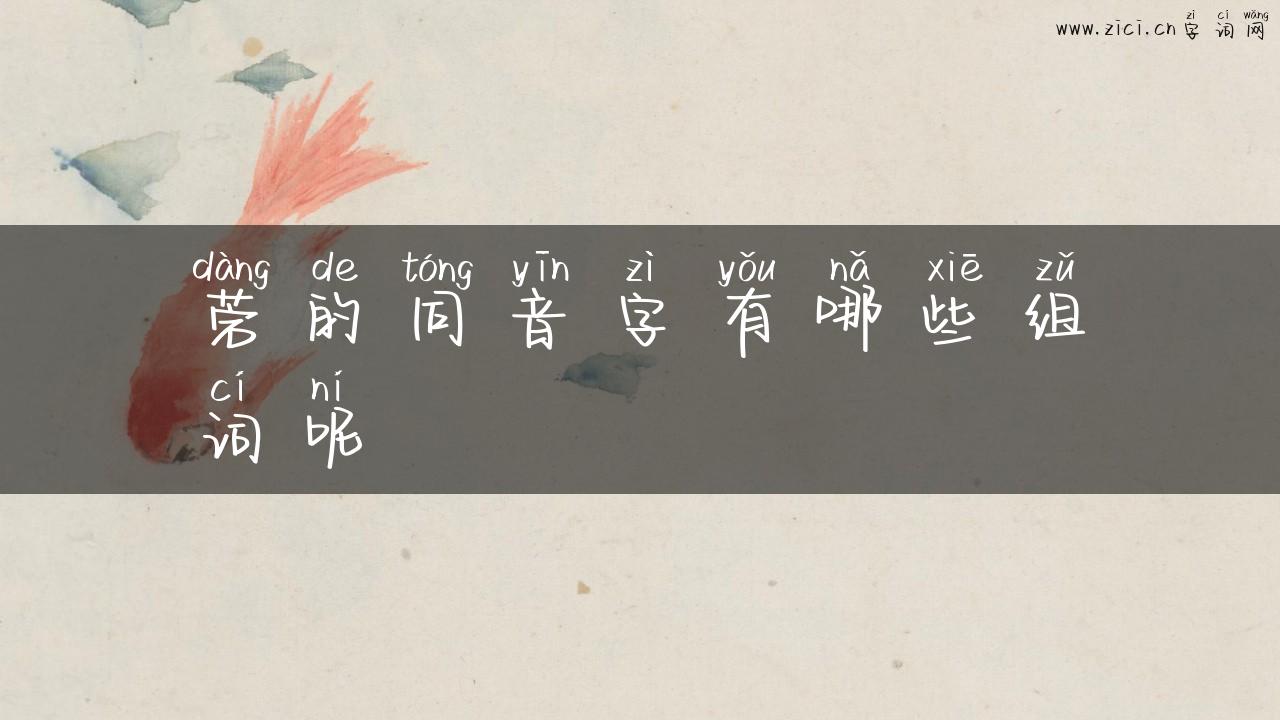 zì cí wǎng
www.zici.cn 字词网
dàng de tóng yīn zì yǒu nǎ xiē zǔ
菪的同音字有哪些组
cí ní
词呢